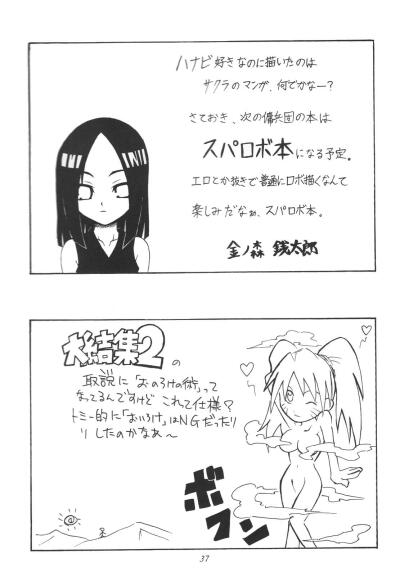 ハナビ好きなのに描いたのは
サクラのマンガ、何でかなー?
さておき、次の傭兵団の本は
スパロボ本になる予定。
エロとか抜きで普通にロボ描くなんて
楽しみだなぁ、スパロボ本。
金ノ森 銭太郎
大結集2の
取説に「おのろけの術」って
なってるんですけど これって仕様?
トミー的に「おいろけ」はNGだった
りしたのかなぁ~
ボフン
37